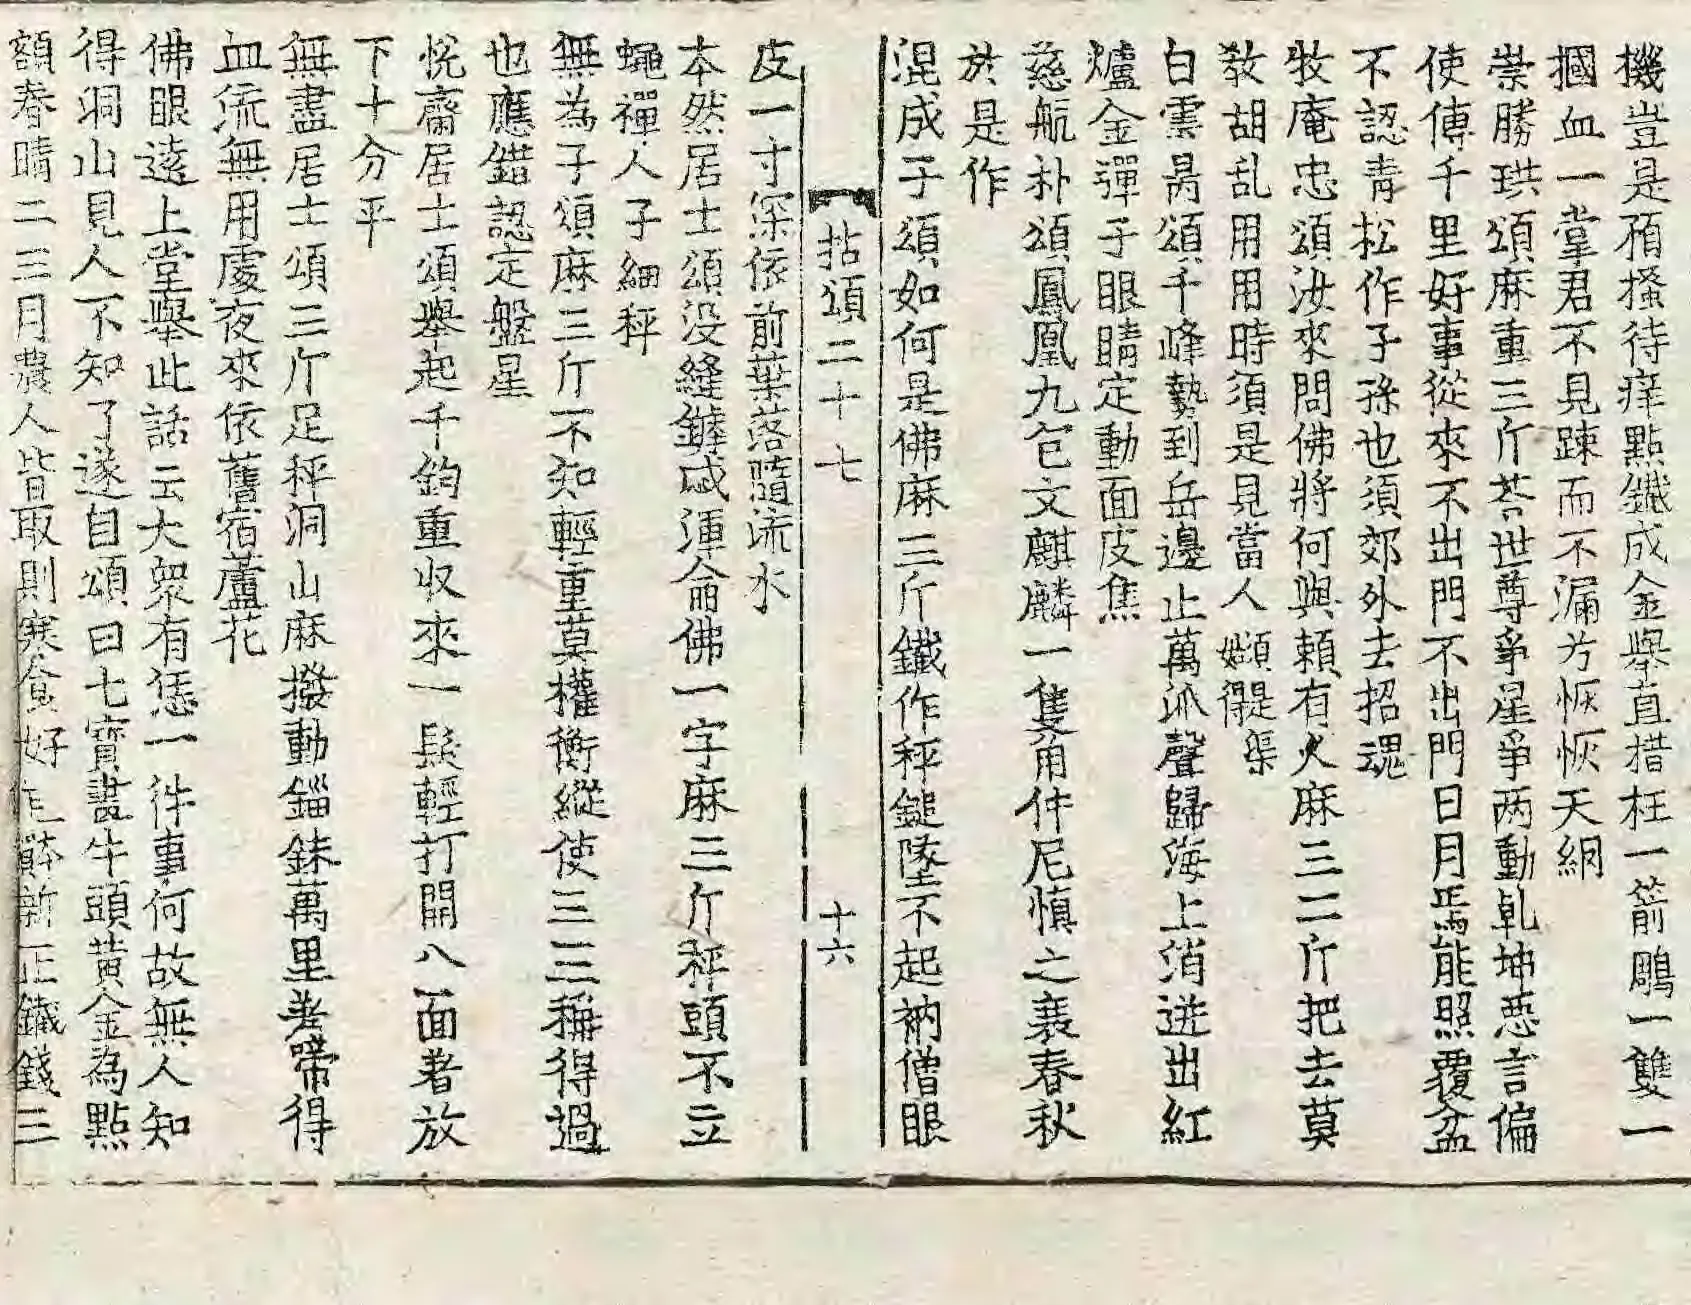 機豈是預搔待痒點鐵成金舉直措枉一箭鵰一雙一
摑血一掌君不見踈而不漏兮恢恢天網
崇勝珙頌麻重三斤荅世尊爭星爭两動乹坤惡言偏
使傳千里好事從來不出門不出門日月焉能照覆盆
不認青松作子孫也須郊外去招魂
牧庵忠頌汝來問佛將何與賴有火麻三二斤把去莫
敎胡乱用用時須是見當人
白雲昺頌千峰勢到岳邊止萬派聲歸海上消迸出紅
爐金彈子眼睛定動面皮焦
慈航朴頌鳳凰九包文麒麟一隻角仲尼慎之裹春秋
於是作
混成子頌如何是佛麻三斤鐵作秤鎚墜不起衲僧眼
拈頌二十七 十六
皮一寸深依前葉落隨流水
本然居士頌没縫鏬成渾侖佛一字麻三斤秤頭不立
蠅禪人子細秤
無為子頌麻三斤不知輕重莫權衡縱使三三稱得過
也應錯認定盤星
恱齋居士頌舉起千鈞重収來一髮輕打開八面著放
下十分平
無盡居士頌三斤足秤洞山麻撥動錙銖萬里差啼得
血流無用處夜來依舊宿蘆花
佛眼遠上堂舉此話云大衆有恁一件事何故無人知
得洞山見人不知了遂自頌曰七寶畫牛頭黄金為點
額春晴二三月農人皆取則寒食好 新正鐵錢三